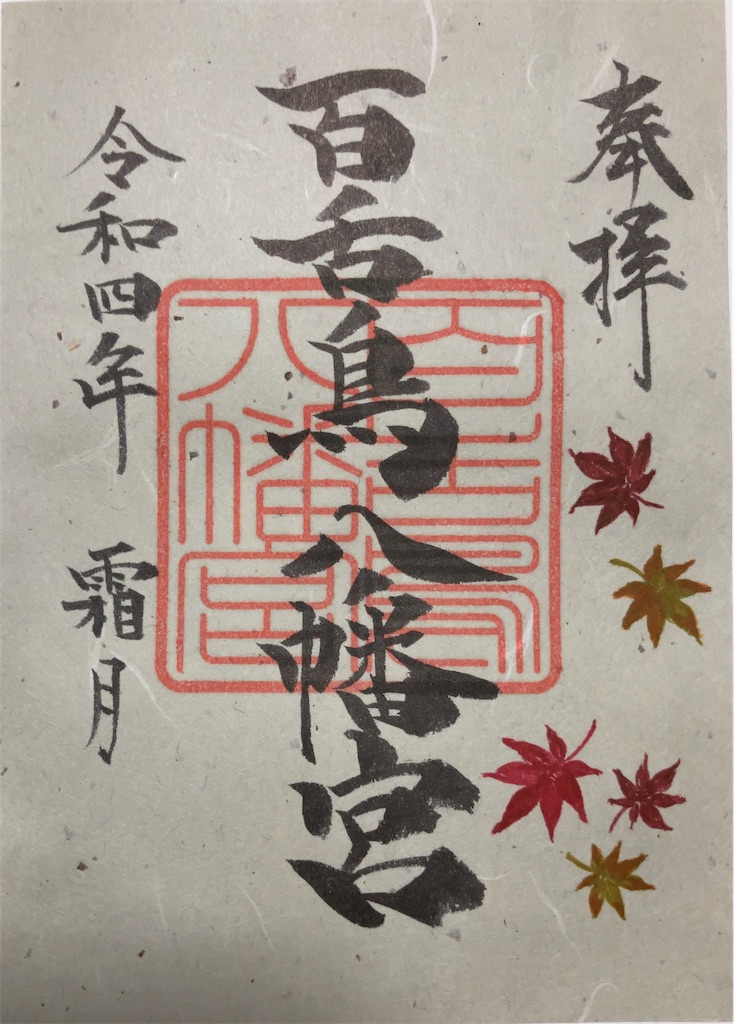 奉拝
百舌鳥八幡宮
百舌鳥
八幡宮
令和四年 霜月